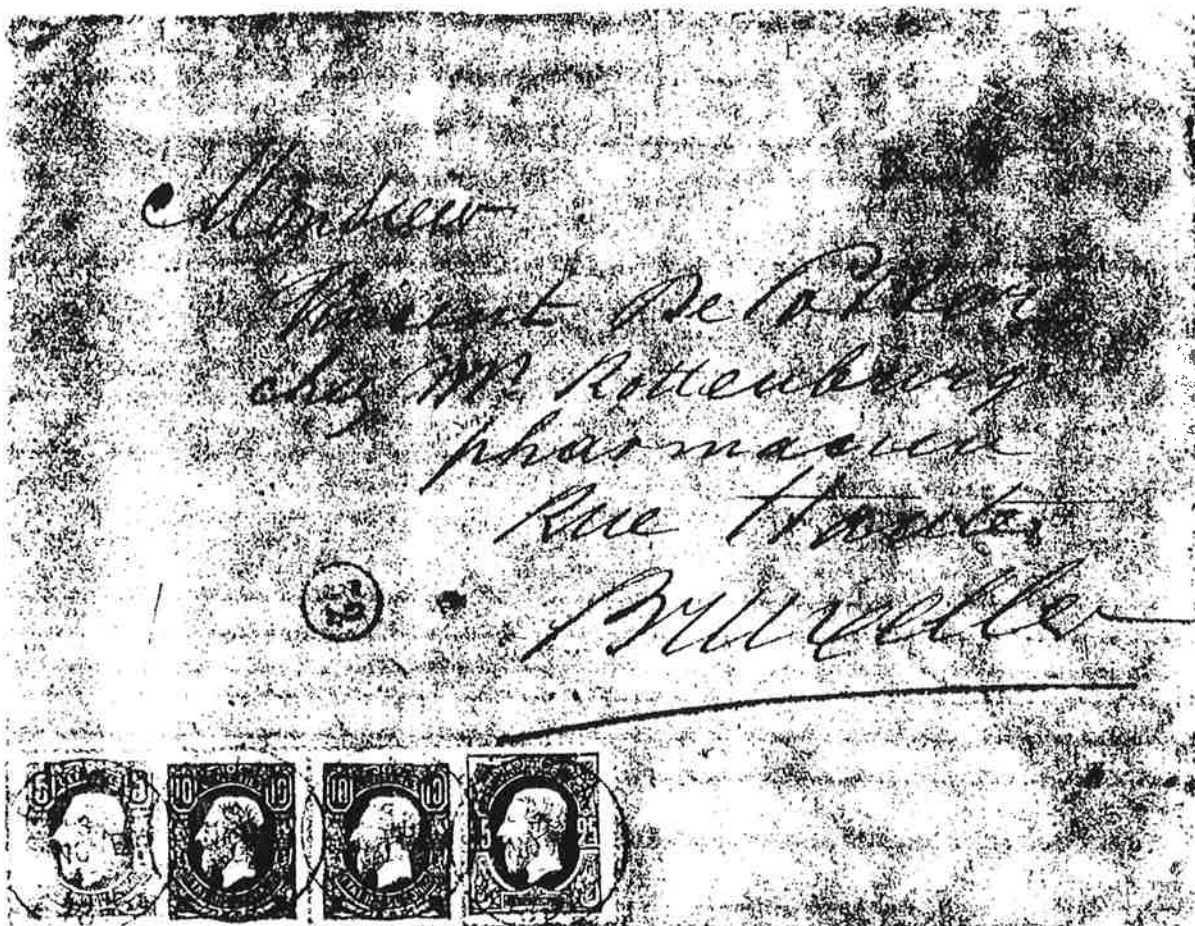 Monsieur
Vincent De Potter
chez Mr. Rottenburg
pharmacien
Rue Haute
Bruxelles
5 5 10 10 10 10 25 25